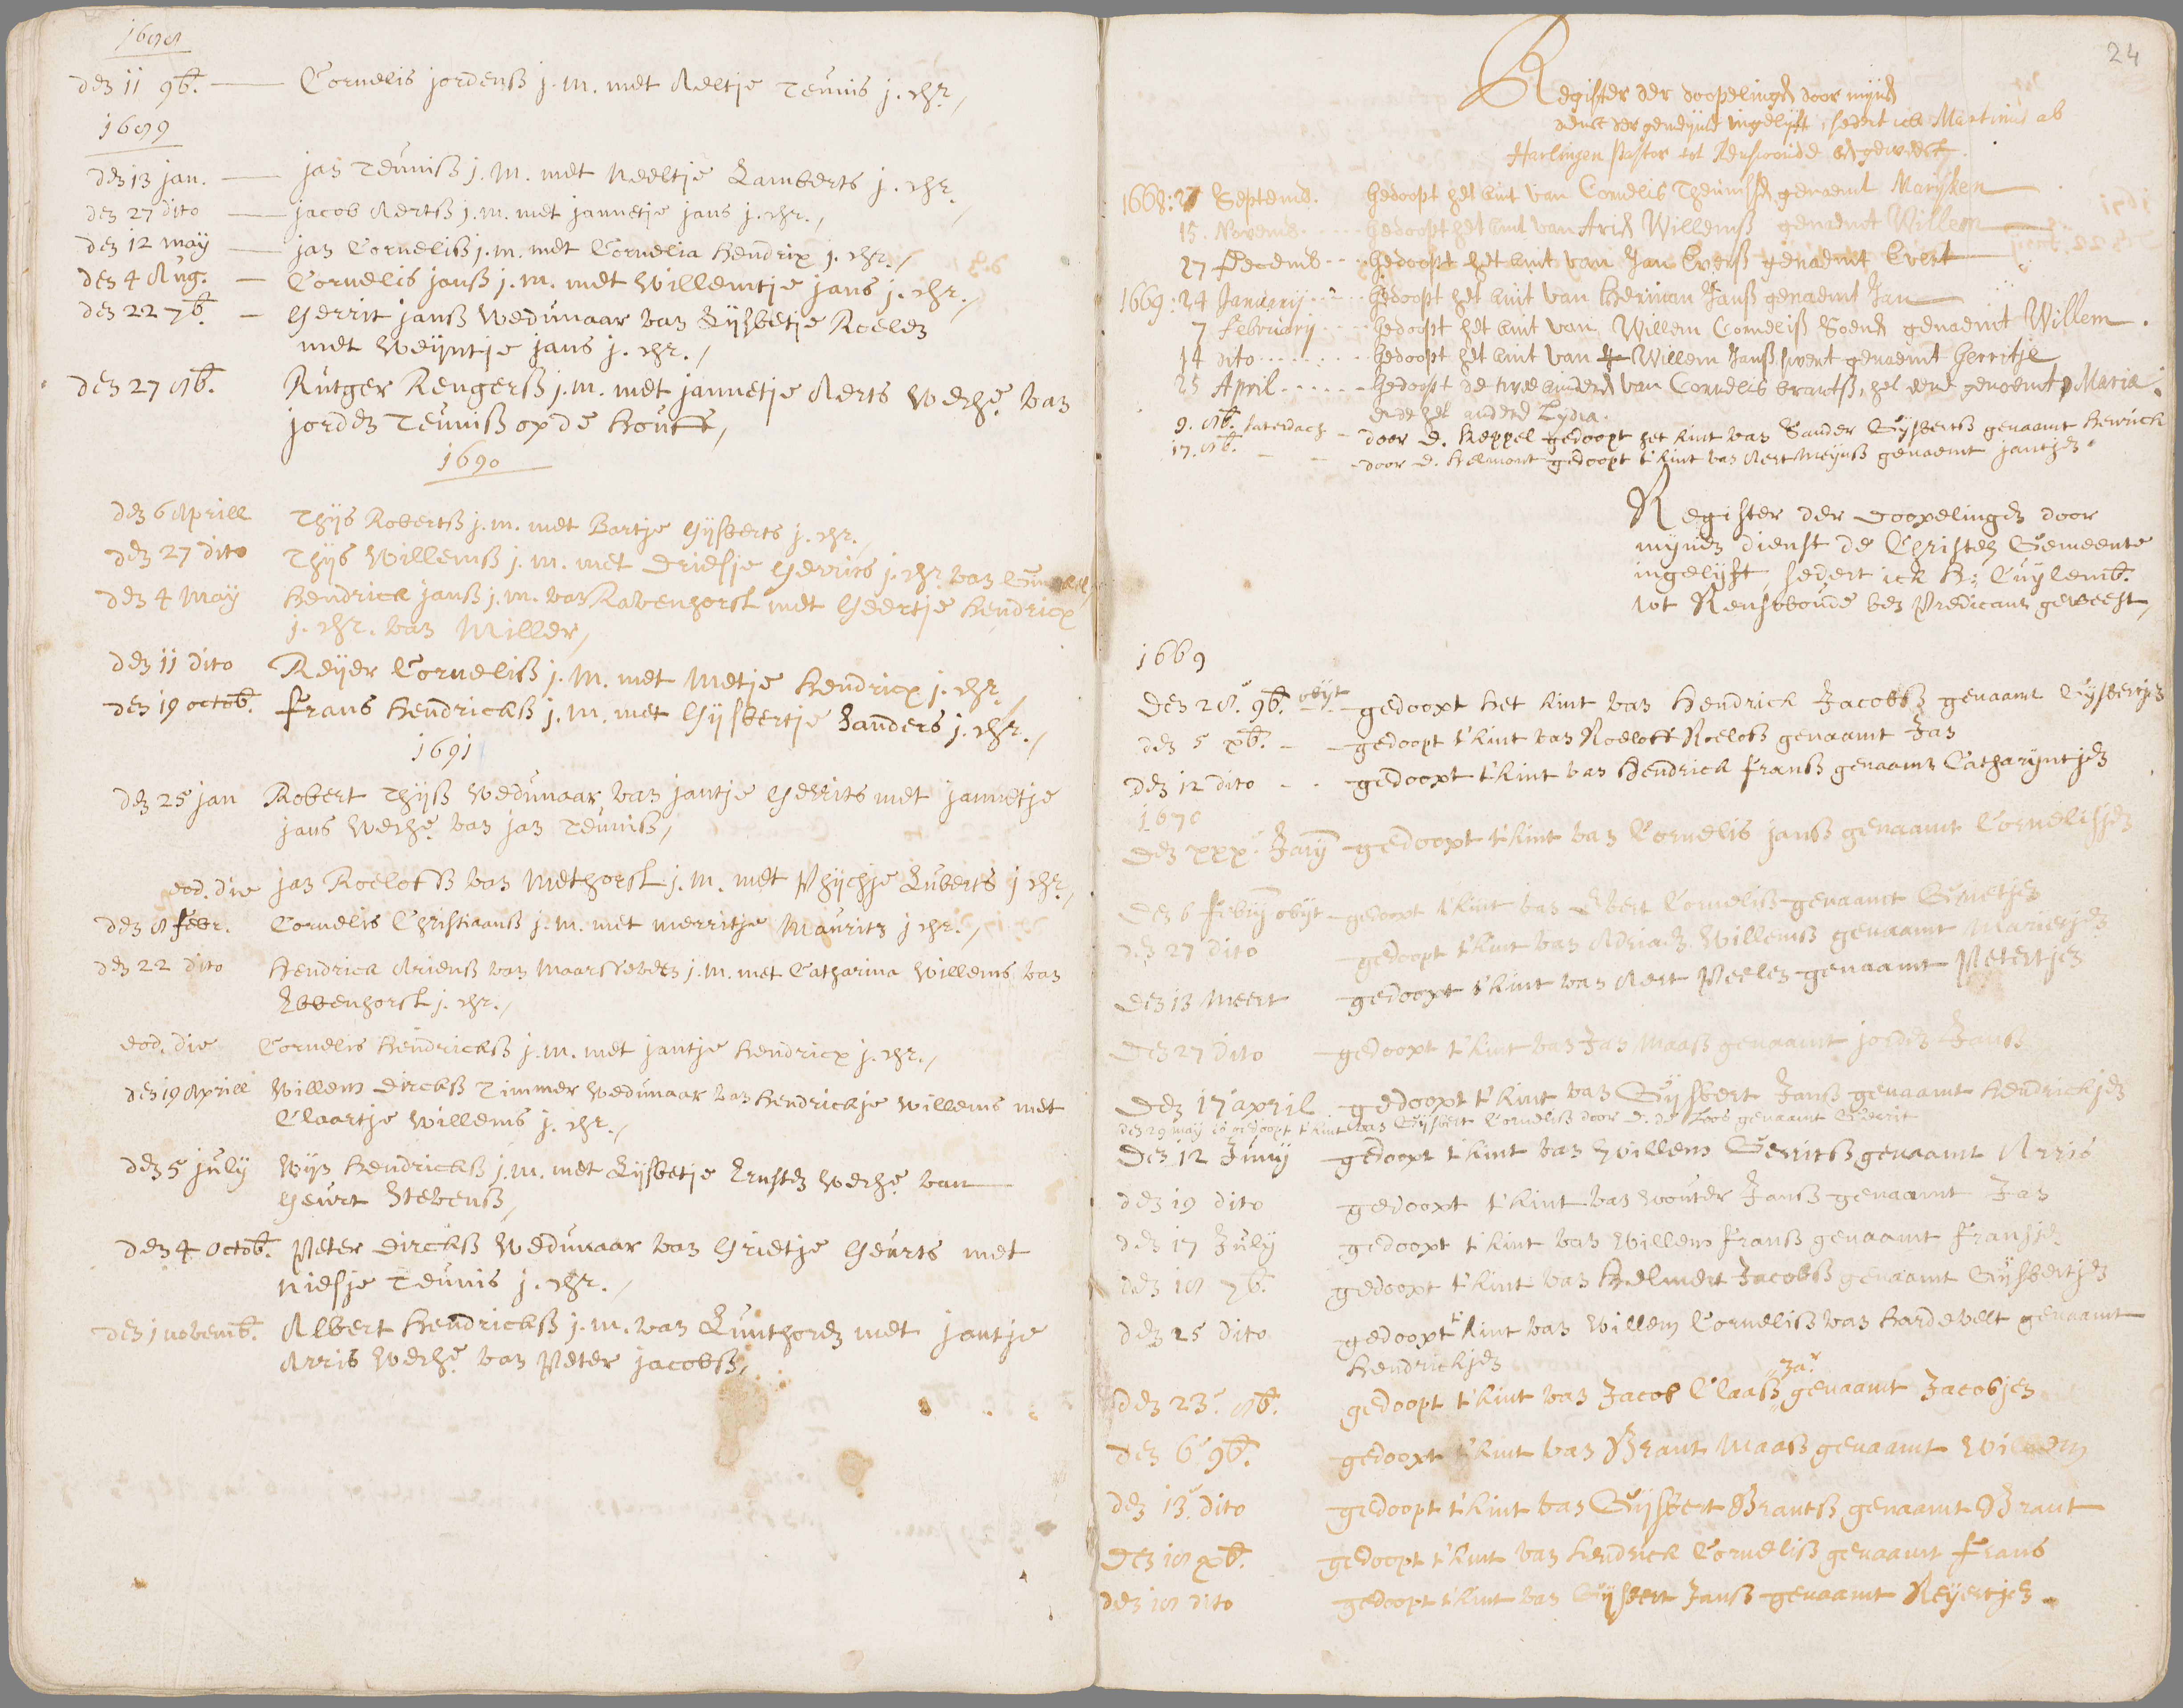 1688
den 11 9b. Cornelis jordenß j.m. met Aeltje Teunis j. dhr.
1689
den 13 jan. jan Teunisß j.m. met Neeltje Lamberts j. dhr.
den 27 dito jacob Aertß j.m. met jannetje jans j. dhr.
den 12 may jan Cornelisß j.m. met Cornelia Hendrix j. dhr.
den 4 Aug. Cornelis janß j.m. met Willemtje jans j. dhr.
den 22 7b. Gerrit janß Weduwaar van Lijsbetje Roelen
met Weyntje jans j. dhr.
den 27 8b. Rutger Rengerß j.m. met jannetje Aerts Wedue van
jorden Teunisß op de Houtt,
1690
den 6 Aprill Thijs Robertß j.m. met Bartje Gijsberts j. dhr.
den 27 dito Thijs Willemß j.m. met Driesje Gerrits j. dhr. van
den 4 May Hendrick janß j.m. van Ravenhorst met Geertje Hendricx
j. dhr. van Miller,
den 11 dito Reijer Cornelisß j.m. met Metje Hendricx j. dhr.
den 19 octob. Frans Hendrickß j.m. met Gijsbertje Sanders j. dhr.
1691
den 25 jan Robert Thijß Weduwaar van jantje Gerrits met jannetje
jans Wedue van jan Teunisß,
eod. die jan Roelofß van Methorst j.m. met Phijchje Luberts j dhr.
den 8 febr. Cornelis Christiaanß j.m. met merritje Mauritz j dhr.
den 22 dito Hendrick Arienß van Maarseveen j.m. met Catharina Willems van
Ebbenhorst j. dhr.
eod. die Cornelis Hendrickß j.m. met jantje Hendricx j. dhr.
den 19 Aprill Willem Dirckß Timmer Weduwaar van Hendrickje Willems met
Claartje Willems j. dhr.
den 5 july Wijn Hendrickß j.m. met Lijsbetje Ernsten Wedue van
Geurt Stevenß,
den 4 octob. Peter Dirckß Weduwaar van Grietje Geurts met
Niesje Teunis j. dhr.
den 1 novemb. Albert Hendrickß j.m. van Lunthoren met jantje
Arris Wedue van Peter jacobß,
24
Register der doopelingen door mijnen
dienst der gemeijnte ingelijft, sedert ick Martinus ab
Harlingen Pastor tot Renswoude ben geweest.
1668: 27 Septemb. Gedoopt het kint van Cornelis Theunissen genaemt Marijken
15. Novemb. Gedoopt het kint van Arien Willemß genaemt Willem
27 Decemb. Gedoopt het kint van Jan Everß genaemt Evert
1669: 24 Januarij Gedoopt het kint van Herman Janß genaemt Jan
7 Februarij Gedoopt het kint van Willem Cornelisß Soenen genaemt Willem.
14 dito Gedoopt het kint van Willem Janß genaemt Gerritje
25 April Gedoopt de twee kinderen van Cornelis brantß, het eene genoemt Maria
ende het andere Lydia.
9. 8b. saterdach door D. Keppel gedoopt het kint van Sander Gijsbertß genaamt Henrick
17. 8b. door D. Helmont gedoopt t'kint van Aert Meijnß genaemt jantjen
Register der doopelingen door
mijnen dienst de Christen Gemeente
ingelijft, sedert ick H: Cuylemb.
tot Renswoude ben Predicant geweest,
1669
Den 28. 9b. obijt gedoopt het kint van Hendrick Jacobß genaamt Gijsbertjen
den 5 xb. gedoopt t'kint van Roeloff Roelofß genaamt Jan
den 12 dito gedoopt t'kint van Hendrick Franß genaamt Catharijntjen
1670
Den xxx. Jany gedoopt t'kint van Cornelis janß genaamt Cornelisjen
Den 6 feby obijt gedoopt t'kint van Evert Cornelisß genaamt Grietjen
den 27 dito gedoopt t'kint van Adriaen Willemß genaamt Marietjen
Den 13 Meert gedoopt t'kint van Aert Peelen genaamt Petertjen
Den 27 dito gedoopt t'kint van Jan Maaß genaamt jorden Jans
Den 17 april gedoopt t'kint van Gijsbert Janß genaamt Hendrickjen
den 29 may is gedoopt t'kint van Gijsbert Cornelisß door D. de Loos genaamt Gerrit
Den 12 Juny gedoopt t'kint van Willem Gerritß genaamt Arris
den 19 dito gedoopt t'kint van Wouter Janß genaamt Jan
den 17 July gedoopt t'kint van Willem Franß genaamt Fransje
den 18 7b. gedoopt t'kint van Helmert Jacobß genaamt Gijsbertjen
den 25 dito gedoopt t'kint van Willem Cornelisß van Hardevelt genaamt
Hendrickjen
den 23. 8b. gedoopt t'kint van Jacob Claasß genaamt Jacobjen
den 6 9b. gedoopt t'kint van Brant Maaß genaamt Willem
den 13 dito gedoopt t'kint van Gijsbert Brantß genaamt Brant
Den 18 xb. gedoopt t'kint van Hendrick Cornelisß genaamt Frans
den 18 dito gedoopt t'kint van Gijsbert Janß genaamt Reyertjen